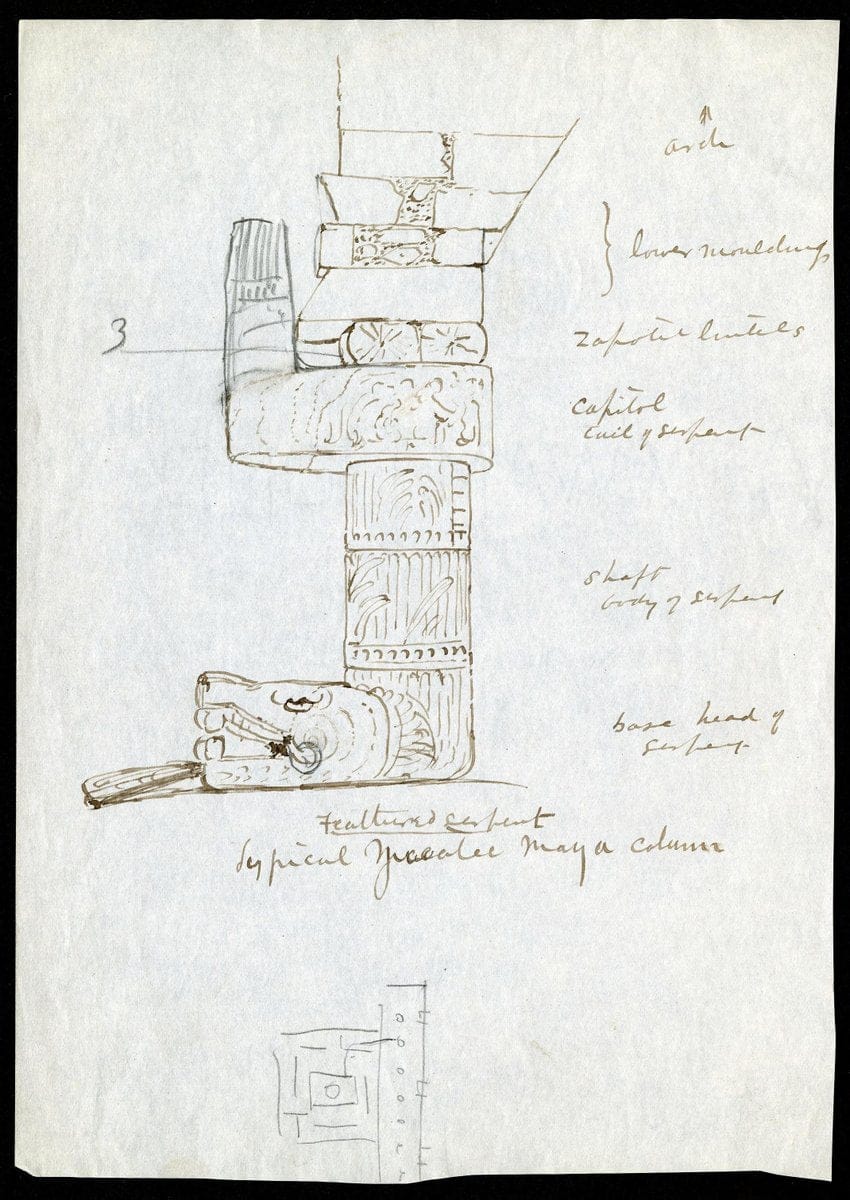 arch
lower mouldings
3
Zapote lintels
capitol
coil of serpent
shaft
body of serpent
base head of
serpent
Feathered serpent
Typical Maya column